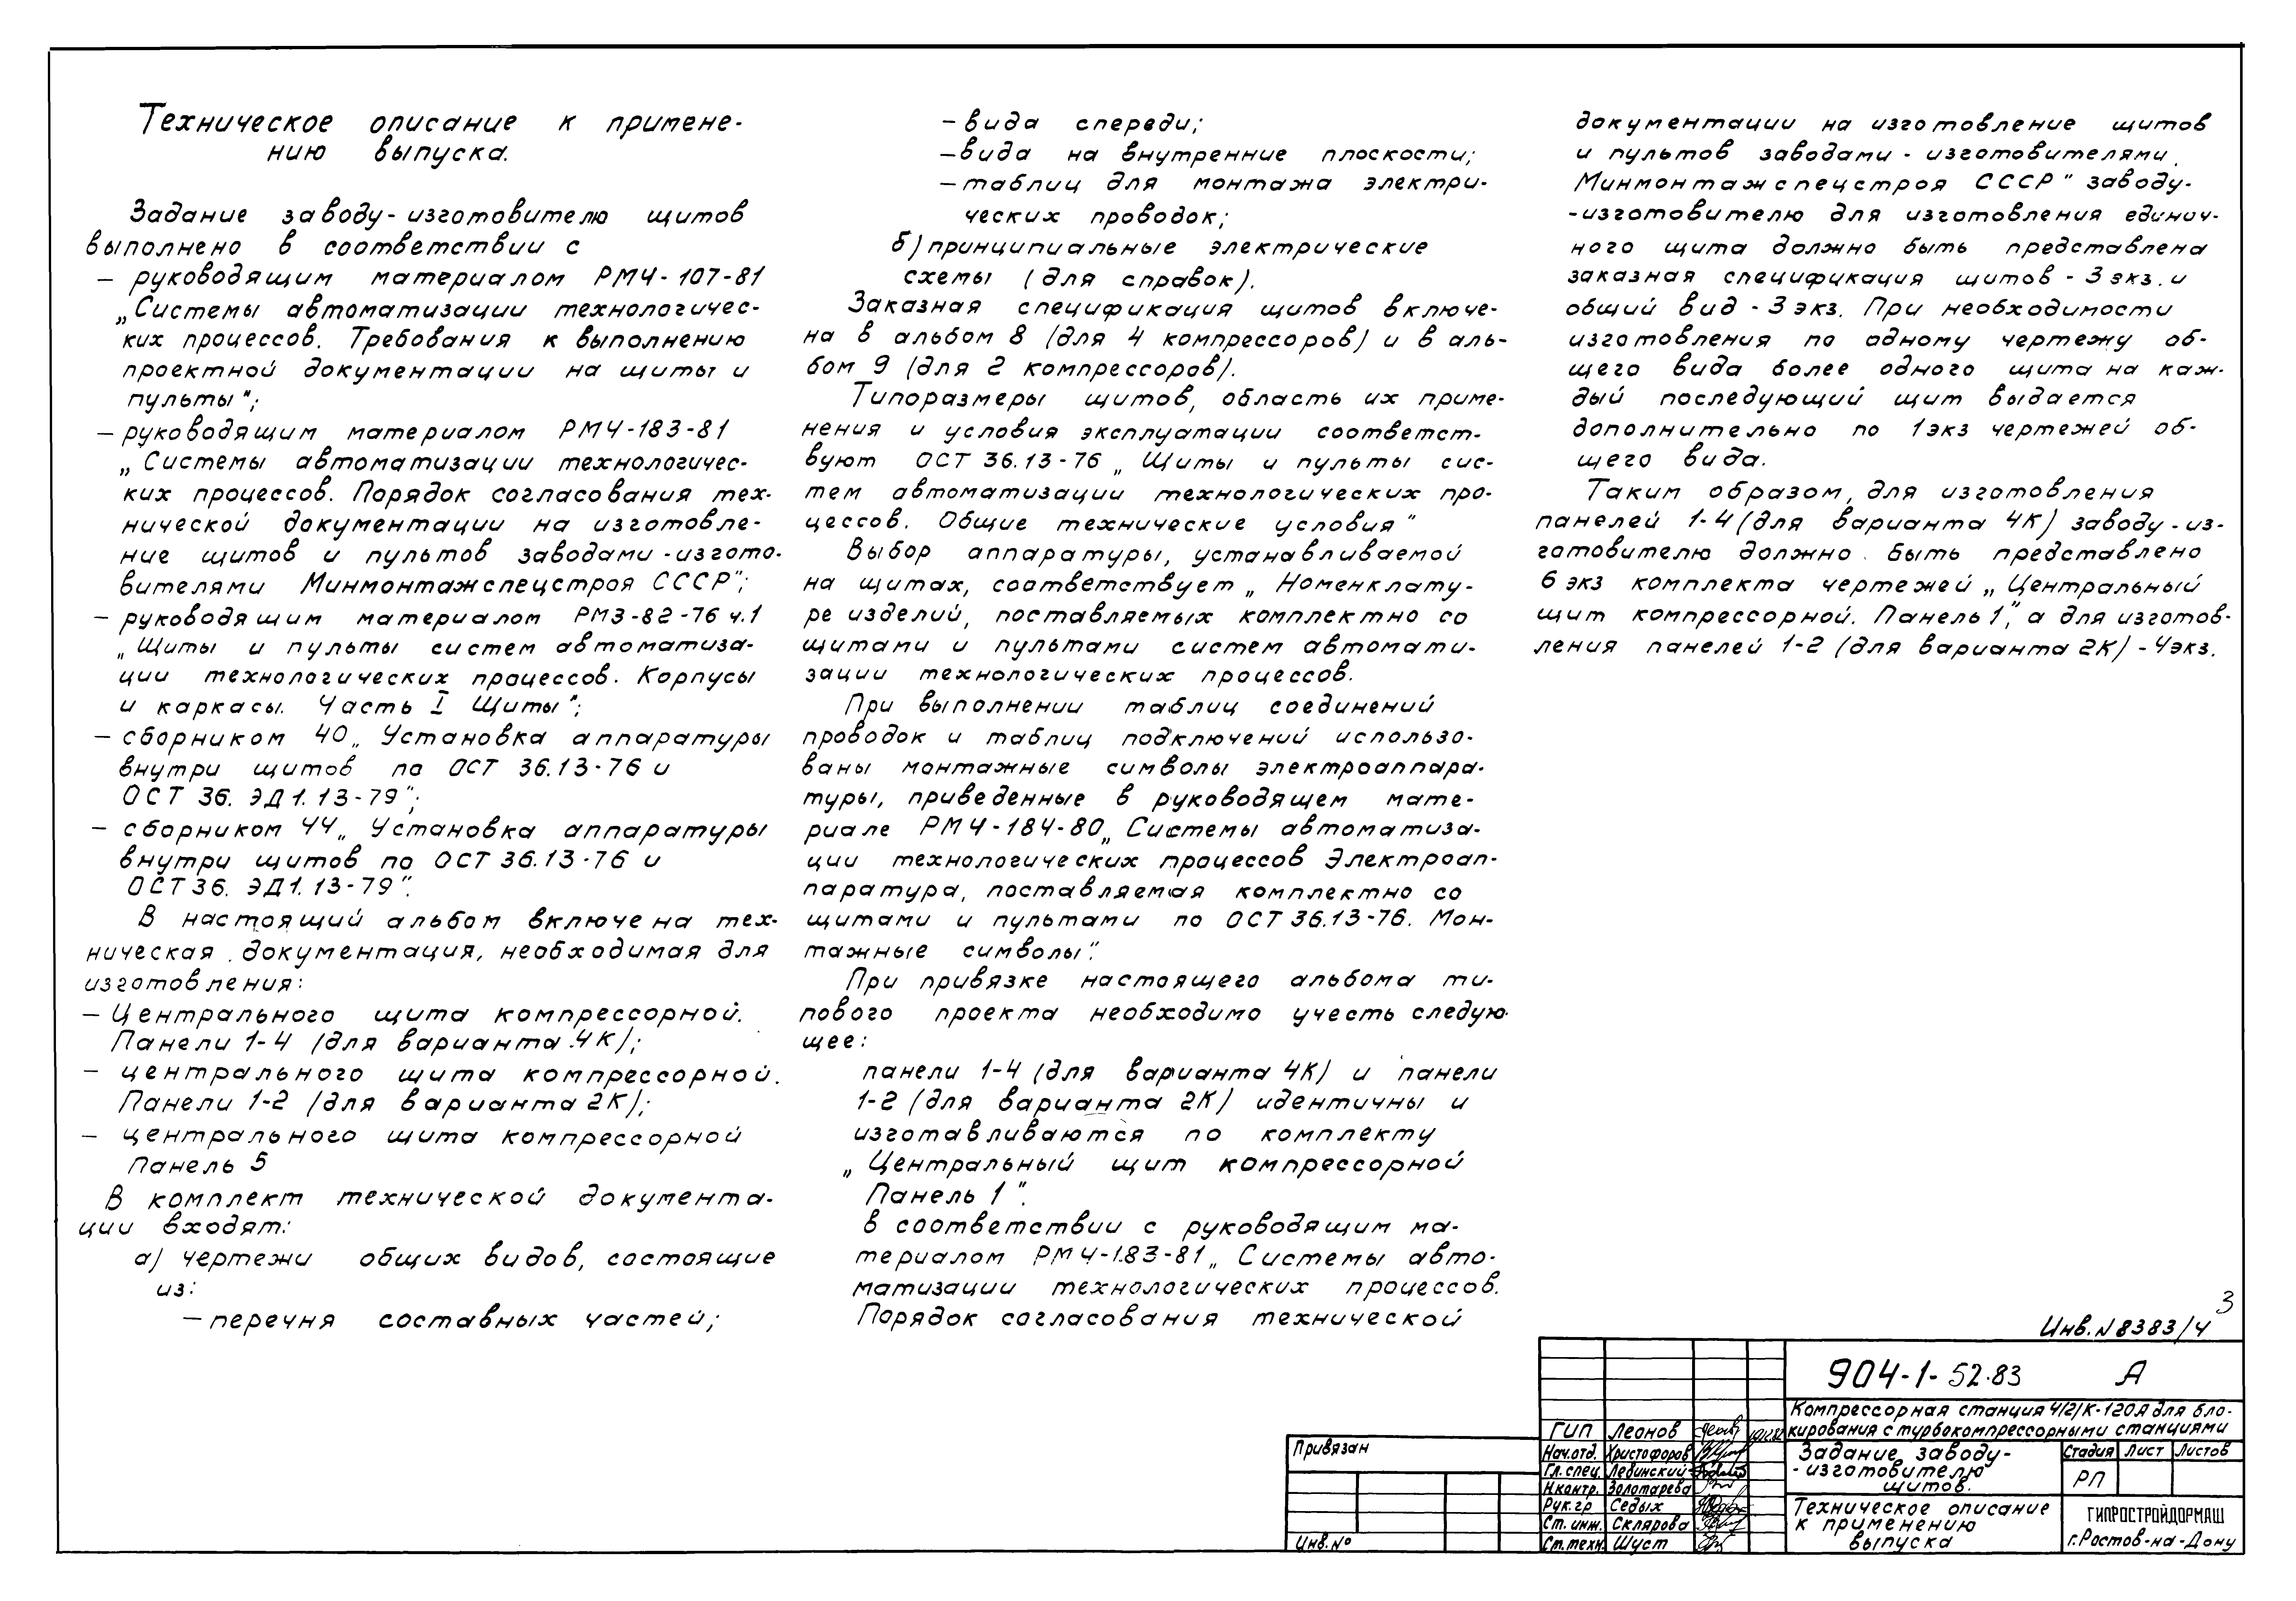 Техническое описание к примене-
нию выпуска.
Задание заводу-изготовителю щитов
выполнено в соответствии с
— руководящим материалом РМ4-107-81
„Системы автоматизации технологичес-
ких процессов. Требования к выполнению
проектной документации на щиты и
пульты";
— руководящим материалом РМ4-183-81
„Системы автоматизации технологичес-
ких процессов. Порядок согласования тех-
нической документации на изготовле-
ние щитов и пультов заводами-изгото-
вителями Минмонтажспецстроя СССР";
— руководящим материалом РМ3-82-76 ч.1
„Щиты и пульты систем автоматиза-
ции технологических процессов. Корпусы
и каркасы. Часть I Щиты";
— сборником 40„ Установка аппаратуры
внутри щитов по ОСТ 36.13-76 и
ОСТ 36. ЭД1.13-79";
— сборником 44„ Установка аппаратуры
внутри щитов по ОСТ 36.13-76 и
ОСТ 36. ЭД1.13-79".
В настоящий альбом включена тех-
ническая документация, необходимая для
изготовления:
— Центрального щита компрессорной.
Панели 1-4 (для варианта 4К);
— центрального щита компрессорной.
Панели 1-2 (для варианта 2К);
— центрального щита компрессорной
Панель 5
В комплект технической документа-
ции входят:
а) чертежи общих видов, состоящие
из:
— перечня составных частей;
— вида спереди;
— вида на внутренние плоскости;
— таблиц для монтажа электри-
ческих проводок;
б) принципиальные электрические
схемы (для справок).
Заказная спецификация щитов включе-
на в альбом 8 (для 4 компрессоров) и в аль-
бом 9 (для 2 компрессоров).
Типоразмеры щитов, область их приме-
нения и условия эксплуатации соответст-
вуют ОСТ 36.13-76 „Щиты и пульты сис-
тем автоматизации технологических про-
цессов. Общие технические условия"
Выбор аппаратуры, устанавливаемой
на щитах, соответствует „Номенклату-
ре изделий, поставляемых комплектно со
щитами и пультами систем автомати-
зации технологических процессов.
При выполнении таблиц соединений
проводок и таблиц подключений использо-
ваны монтажные символы электроаппара-
туры, приведенные в руководящем мате-
риале РМ4-184-80„ Системы автоматиза-
ции технологических процессов Электроап-
паратура, поставляемая комплектно со
щитами и пультами по ОСТ 36.13-76. Мон-
тажные символы".
При привязке настоящего альбома ти-
пового проекта необходимо учесть следую-
щее:
панели 1-4 (для варианта 4К) и панели
1-2 (для варианта 2К) идентичны и
изготавливаются по комплекту
„Центральный щит компрессорной
Панель 1".
в соответствии с руководящим ма-
териалом РМ4-183-81„ Системы авто-
матизации технологических процессов.
Порядок согласования технической
документации на изготовление щитов
и пультов заводами-изготовителями.
Минмонтажспецстроя СССР" заводу-
-изготовителю для изготовления единич-
ного щита должно быть представлена
заказная спецификация щитов - 3 экз. и
общий вид - 3 экз. При необходимости
изготовления по одному чертежу об-
щего вида более одного щита на каж-
дый последующий щит выдается
дополнительно по 1экз чертежей об-
щего вида.
Таким образом, для изготовления
панелей 1-4 (для варианта 4К) заводу-из-
готовителю должно быть представлено
6 экз комплекта чертежей „Центральный
щит компрессорной. Панель 1", а для изготов-
ления панелей 1-2 (для варианта 2К) - 4экз.
3
Инв.№8383/4
904-1-52.83 А
Компрессорная станция 4/2/К-120А для бло-
кирования с турбокомпрессорными станциями
Задание заводу-
-изготовителю
щитов.
Стадия Лист Листов
РП
Техническое описание
к применению
выпуска
ГИПРОСТРОЙДОРМАШ
г.Ростов-на-Дону
ГИП Леонов
Нач.отд. Христофоров
Гл.спец. Левинский
Н.контр. Золотарева
Рук.гр Седых
Ст.инж. Склярова
Ст.техн. Шуст
Привязан
Инв.№